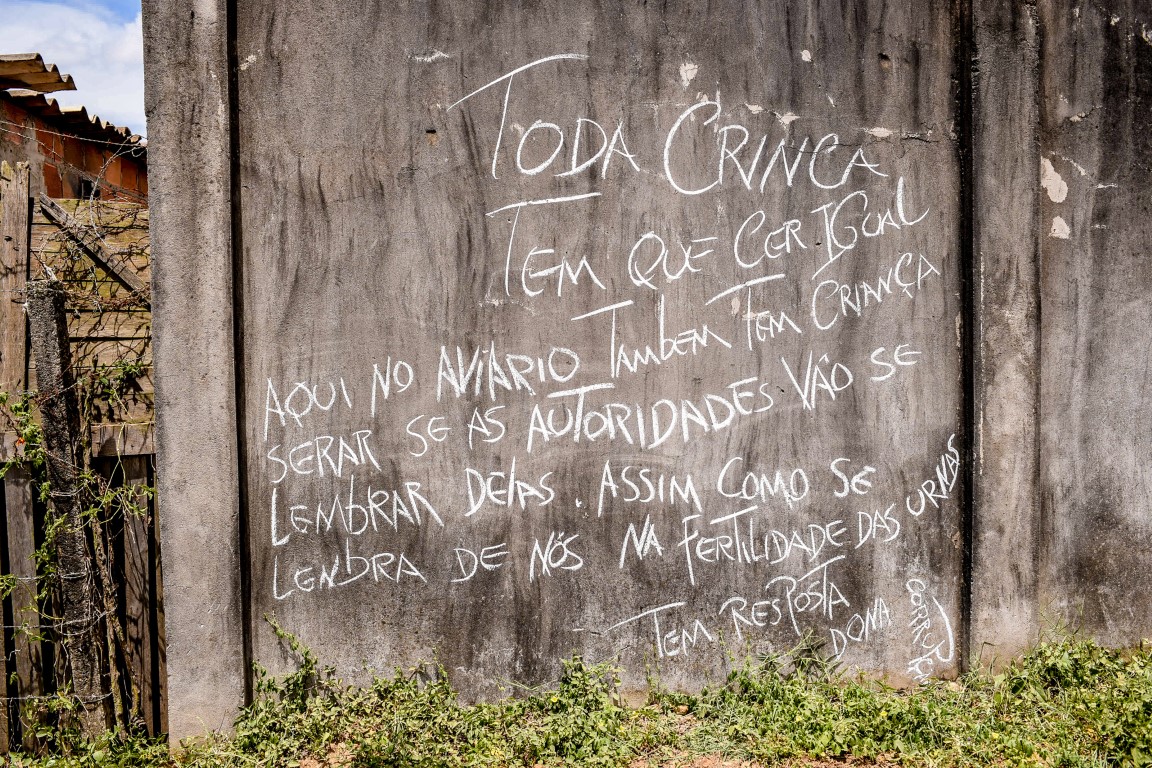 TODA CRINCA
TEM QUE CER IGUAL
AQUI NO AVIÁRIO TAMBEM TEM CRIANÇA
SERAR SE AS AUTORIDADES VÃO SE
LEMBRAR DELAS. ASSIM COMO SE
LENBRA DE NÓS NA FERTILIDADE DAS URNAS
TEM RESPOSTA
DONA